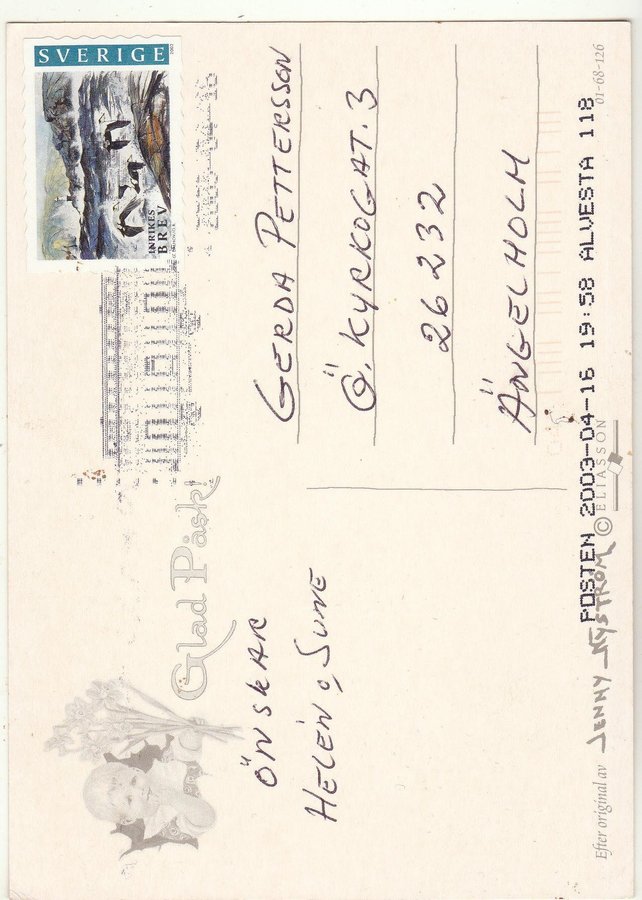 SVERIGE
INRIKES
BREV
Glad Påsk!
ÖNSKAR
HELÉN o SUNE
GERDA PETTERSSON
Ö. KYRKOGAT. 3
26232
ÄNGELHOLM
POSTEN 2003-04-16 19:58 ALVESTA 118
Efter original av JENNY NYSTRÖM © ELIASSON
01-68-126